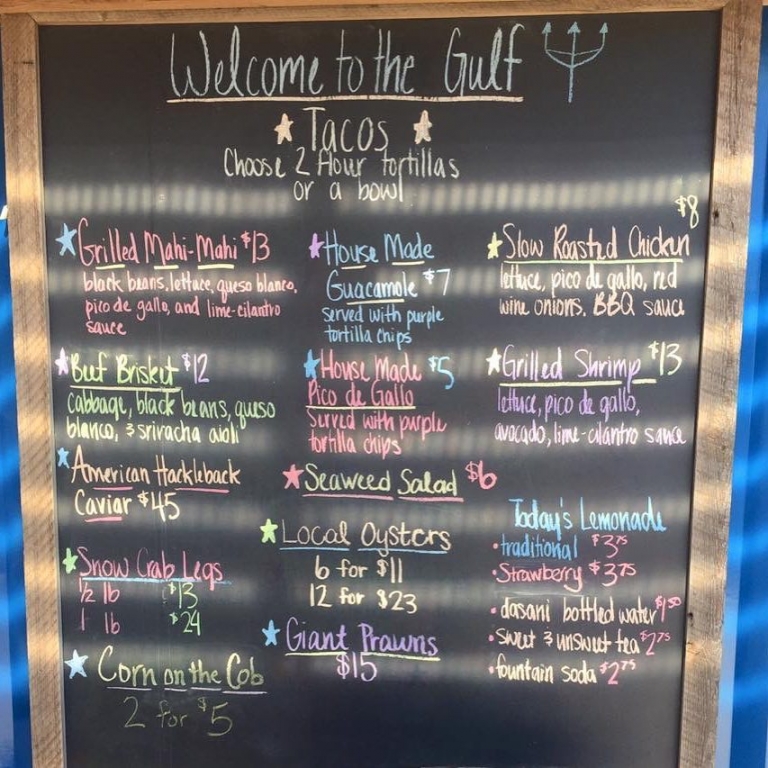 Welcome to the Gulf
Tacos
Choose 2 flour tortillas
or a bowl
Grilled Mahi-Mahi $13
black beans, lettuce, queso blanco,
pico de gallo, and lime-cilantro
sauce
Beef Brisket $12
cabbage, black beans, queso
blanco, & sriracha aioli
American Hackleback
Caviar $45
Snow Crab Legs
1/2 lb $13
1 lb $24
Corn on the Cob
2 for $5
House Made
Guacamole $7
served with purple
tortilla chips
House Made $5
Pico de Gallo
served with purple
tortilla chips
Seaweed Salad $6
Local Oysters
6 for $11
12 for $23
Giant Prawns
$15
$8
Slow Roasted Chicken
lettuce, pico de gallo, red
wine onions, BBQ sauce
Grilled Shrimp $13
lettuce, pico de gallo,
avocado, lime-cilantro sauce
Today's Lemonade
• traditional $3.75
• Strawberry $3.75
• dasani bottled water $1.50
• sweet & unsweet tea $2.75
• fountain soda $2.75